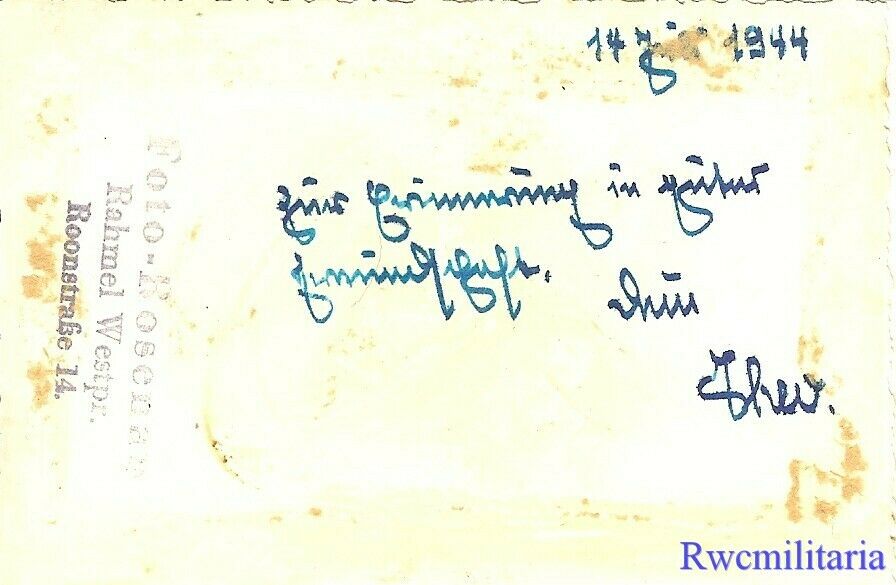 14 1944
Zur Erinnerung in guter
Freundschaft.
Dein
Foto-Rosenau
Rahmel Westpr.
Roonstraße 14.
Rwcmilitaria